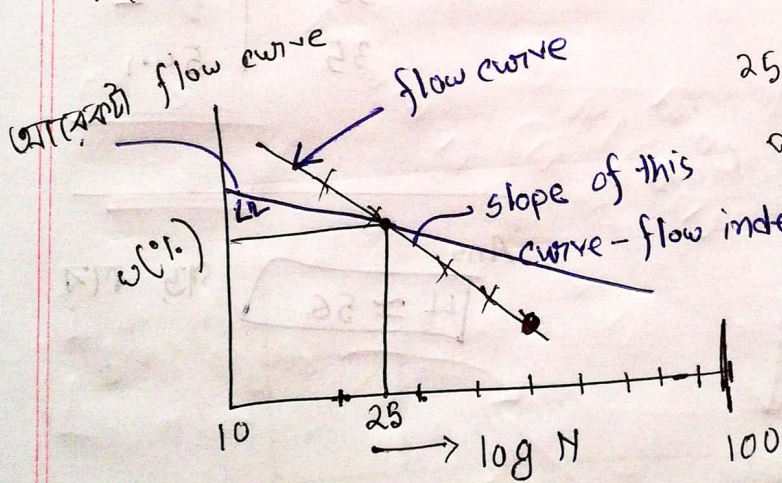 আরেকটা flow curve
flow curve
25
slope of this
curve - flow inde
LL
w(%)
10
25
log N
100